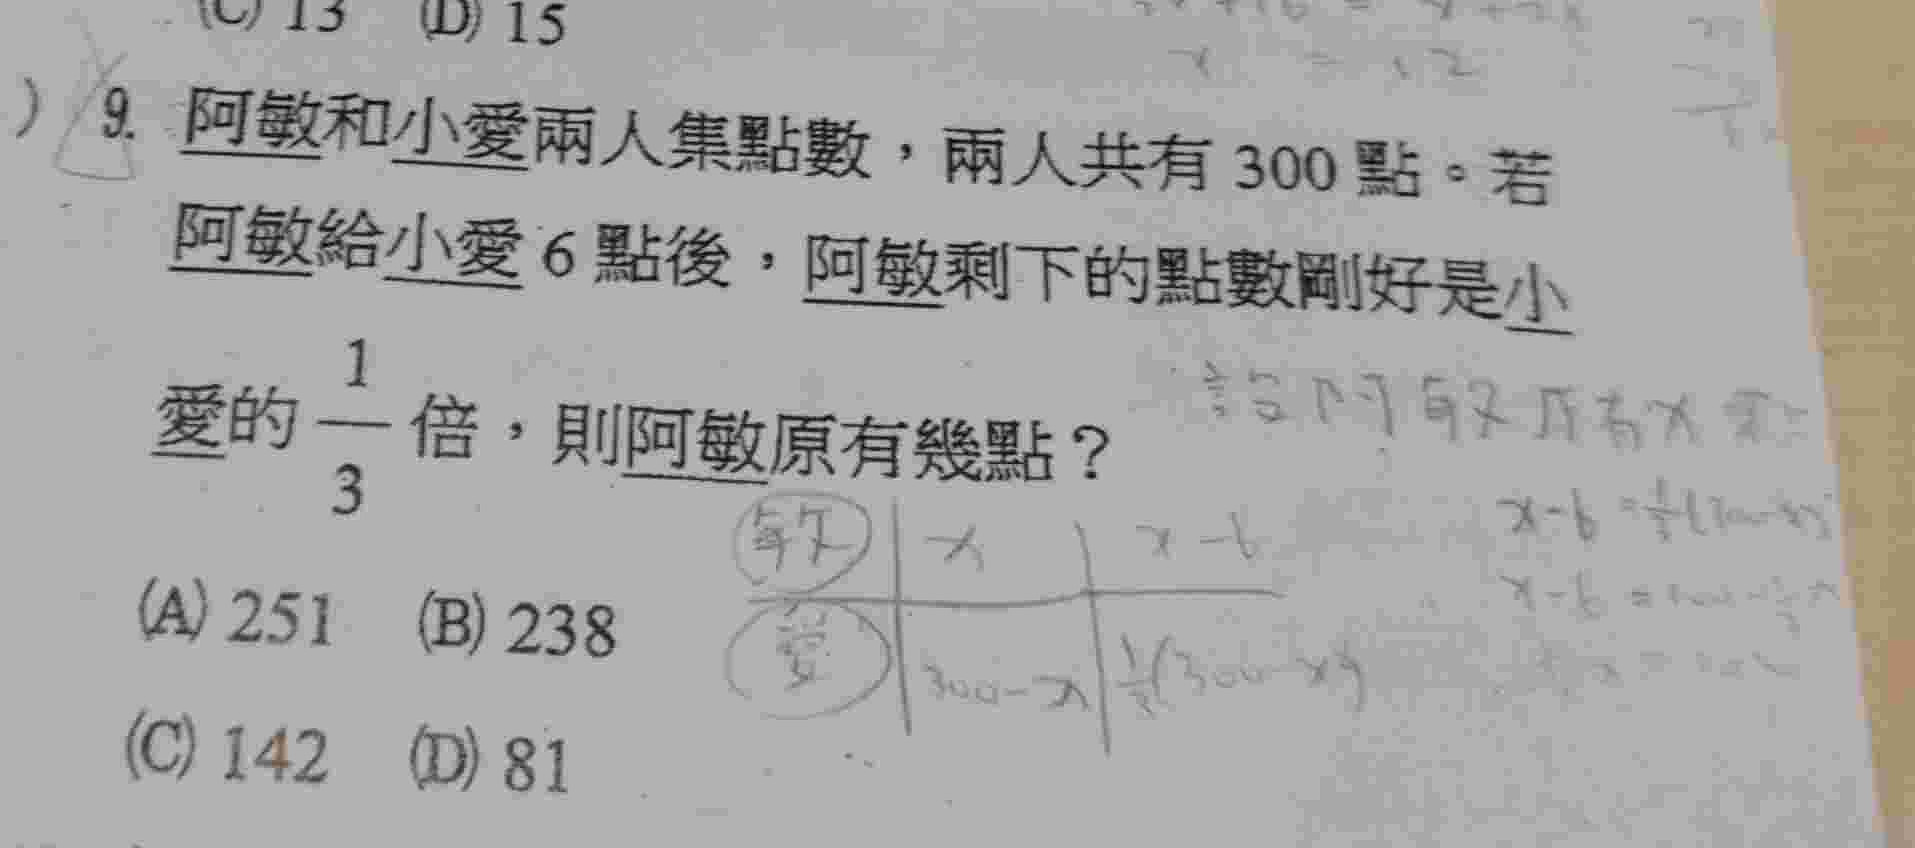 (C) 13 (D) 15
x = 12
) 9. 阿敏和小愛兩人集點數，兩人共有 300 點。若
阿敏給小愛 6 點後，阿敏剩下的點數剛好是小
愛的 1/3 倍，則阿敏原有幾點？
設阿敏原有x點
敏 x x-6
x-6=1/3(300-x)
(A) 251 (B) 238
愛 300-x 1/3(300-x)
(C) 142 (D) 81